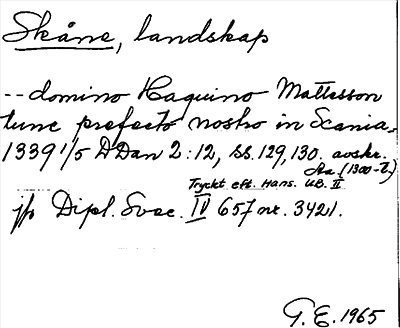 Skåne, landskap
-- domino Haquino Mattesson
tunc prefecto nostro in Scania.
1339 1/5 DDan 2:12, ss. 129, 130. avskr.
Aa (1300-t.)
Tryckt eft. Hans. UB. II
jfr Dipl. Svec. IV 657 nr. 3421.
G. E. 1965